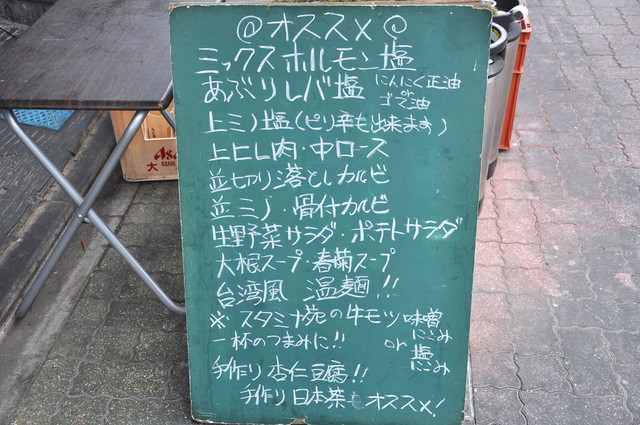 ◎オススメ◎
ミックスホルモン塩
あぶりレバ塩 にんにく正油
or
ゴマ油
上ミノ塩(ピリ辛も出来ます)
上ヒレ肉・中ロース
並切り落としカルビ
並ミノ・骨付カルビ
生野菜サラダ・ポテトサラダ
大根スープ・春菊スープ
台湾風 温麺!!
※スタミナ苑の牛モツ 味噌
にこみ
一杯のつまみに!! or 塩
にこみ
手作り杏仁豆腐!!
手作り日本茶もオススメ!
Asa
大